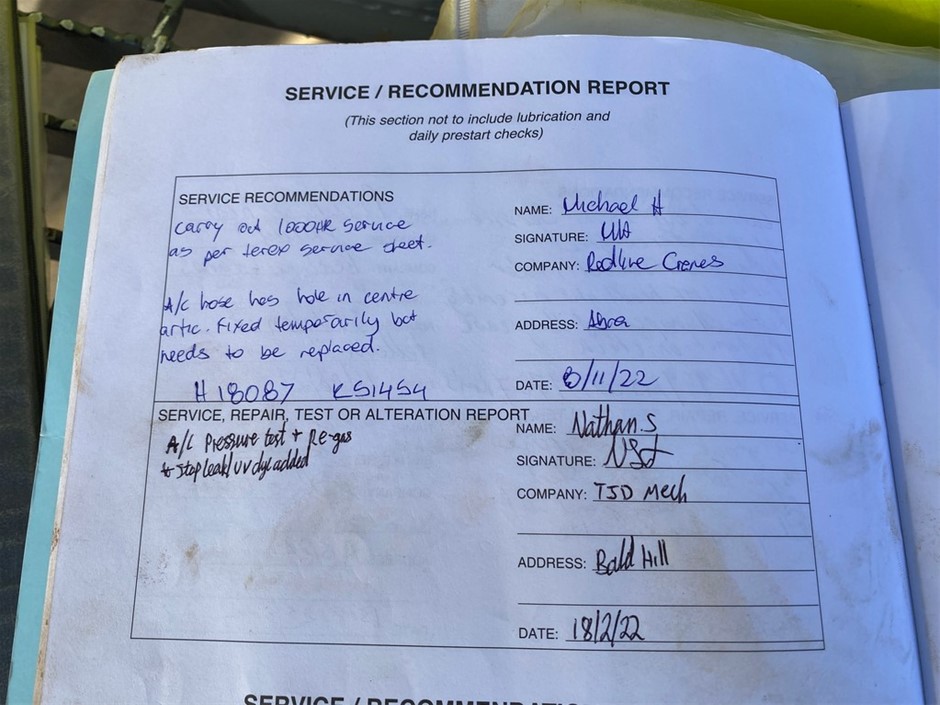 SERVICE / RECOMMENDATION REPORT
(This section not to include lubrication and
daily prestart checks)
SERVICE RECOMMENDATIONS
carry out 1000HR service
as per terex service sheet.
A/C hose has hole in centre
artic. Fixed temporarily but
needs to be replaced.
H 18087 KS1454
NAME: Michael H
SIGNATURE:
COMPANY: Redline Cranes
ADDRESS: Abra
DATE: 8/11/22
SERVICE, REPAIR, TEST OR ALTERATION REPORT
A/C Pressure test + Re-gas
+ Stop leak/UV dye added
NAME: Nathan.S
SIGNATURE:
COMPANY: TJD Mech
ADDRESS: Bald Hill
DATE: 18/2/22
SERVICE / RECOMMENDATIO